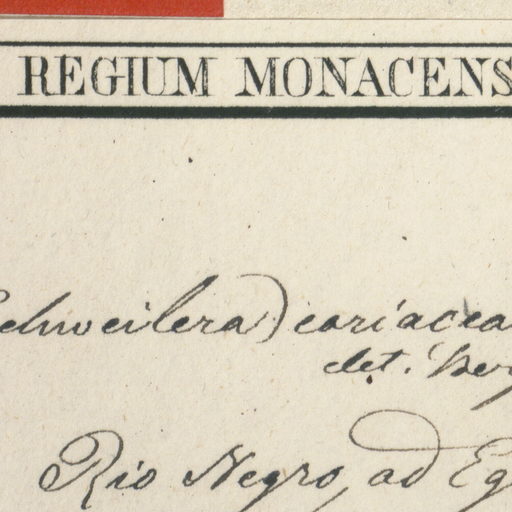 REGIUM MONACENS
chweilera) coriacea
det. Ber
Rio Negro, ad Eg